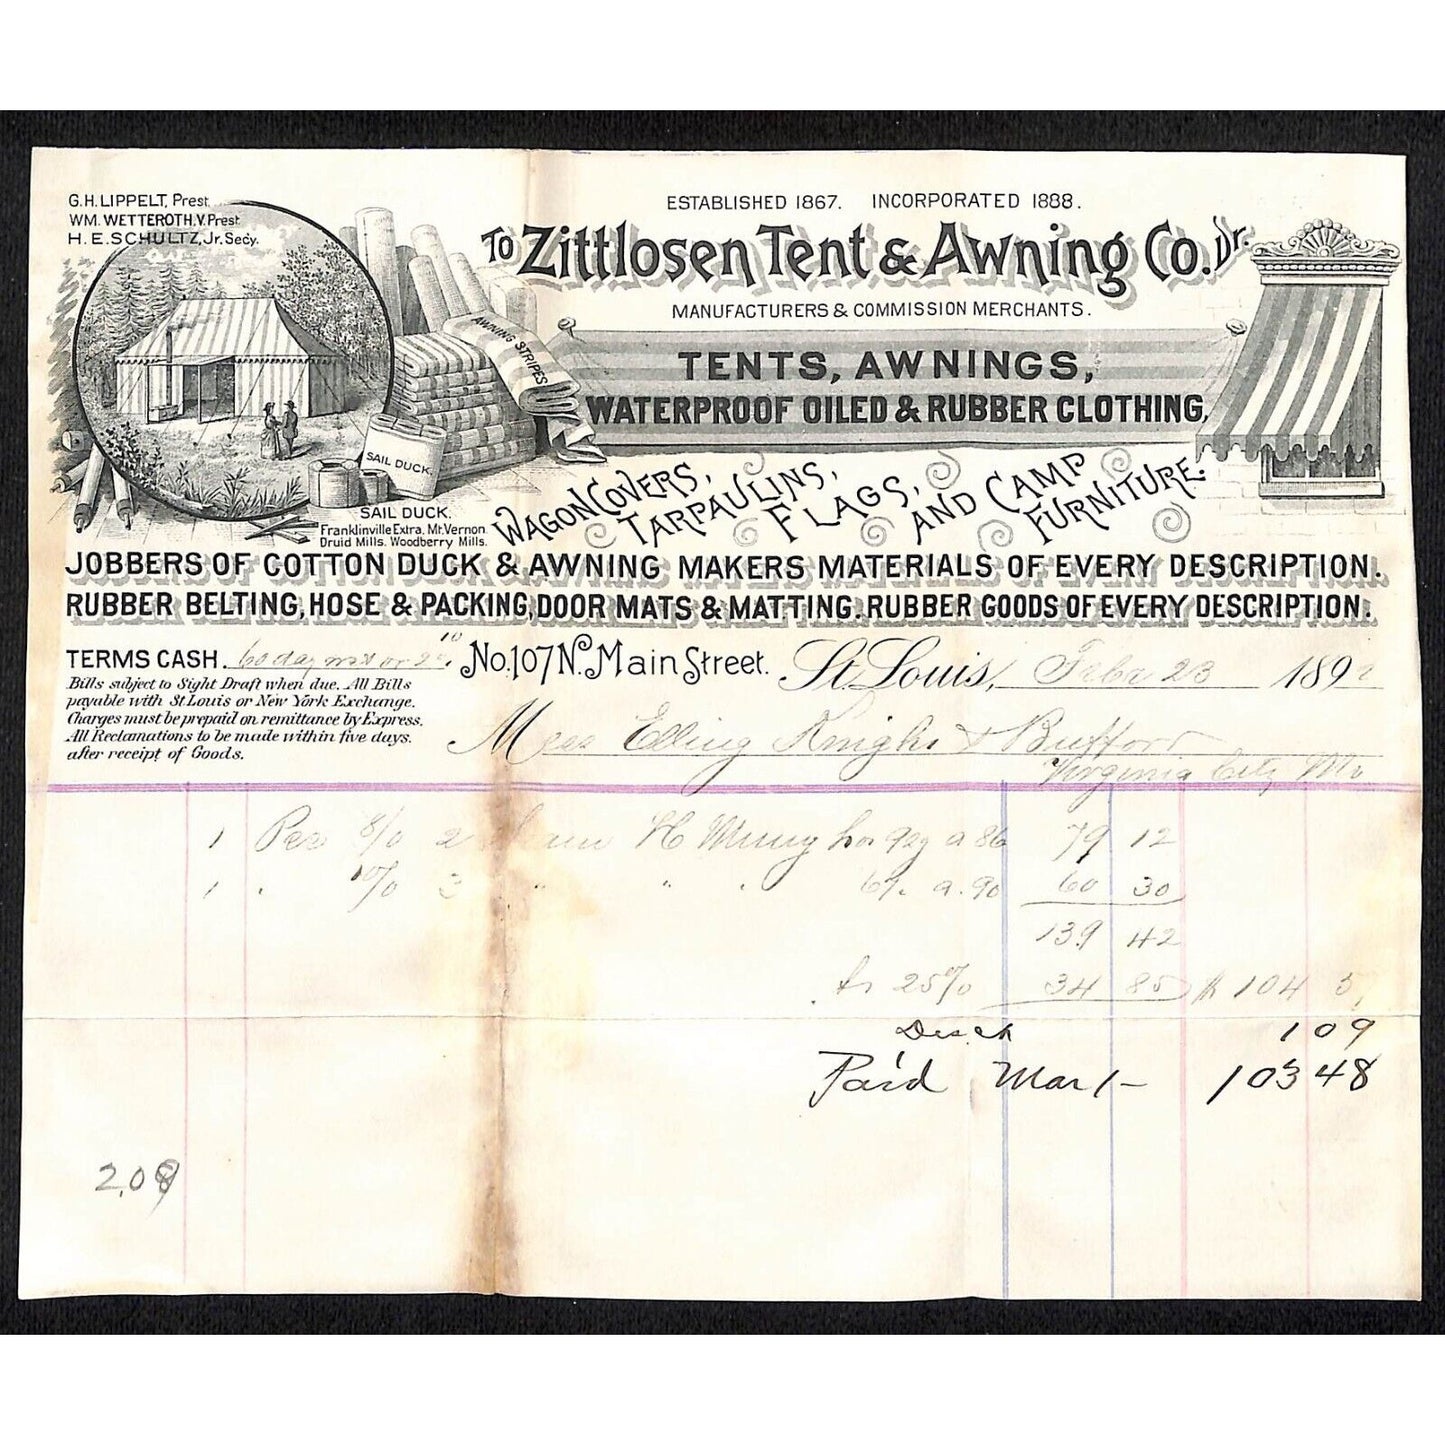 G.H. LIPPELT, Prest.
WM. WETTEROTH. V. Prest.
H. E. SCHULTZ, Jr. Secy.
ESTABLISHED 1867. INCORPORATED 1888.
To Zittlosen Tent & Awning Co. Dr.
MANUFACTURERS & COMMISSION MERCHANTS.
AWNING STRIPES
TENTS, AWNINGS,
WATERPROOF OILED & RUBBER CLOTHING,
SAIL DUCK.
WAGON COVERS, TARPAULINS, FLAGS, AND CAMP FURNITURE.
SAIL DUCK.
Franklinville Extra. Mt. Vernon.
Druid Mills. Woodberry Mills.
JOBBERS OF COTTON DUCK & AWNING MAKERS MATERIALS OF EVERY DESCRIPTION.
RUBBER BELTING, HOSE & PACKING, DOOR MATS & MATTING. RUBBER GOODS OF EVERY DESCRIPTION.
TERMS CASH. 60 day or No. 107 N. Main Street. St. Louis, 23 189
Bills subject to Sight Draft when due. All Bills
payable with St. Louis or New York Exchange.
Charges must be prepaid on remittance by Express.
All Reclamations to be made within five days.
after receipt of Goods.
Mess Elling Knight & Buffor
Virginia City
1 Pce 8/0 2 92 a 86 79 12
1 " 10/0 3 " " " 67 a. 90 60 30
139 42
25% 34 85 104 5
109
Paid Mar 1- 103 48
2.09